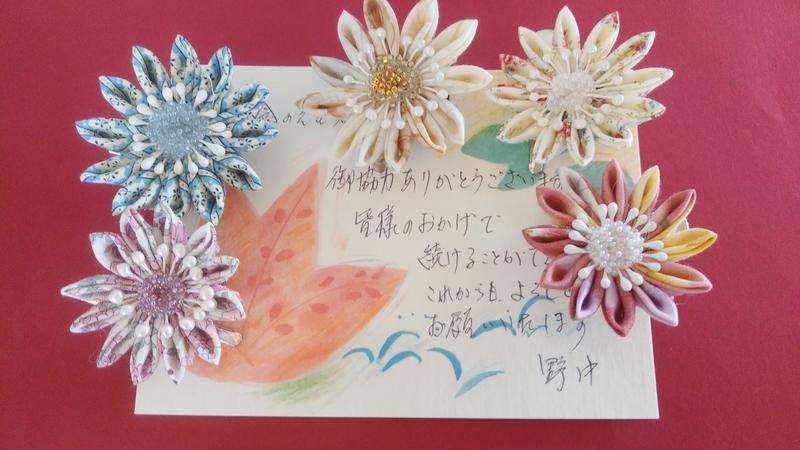 御協力ありがとうございます
皆様のおかげで
続けることがで
これからも よろし
お願いいたします
野中